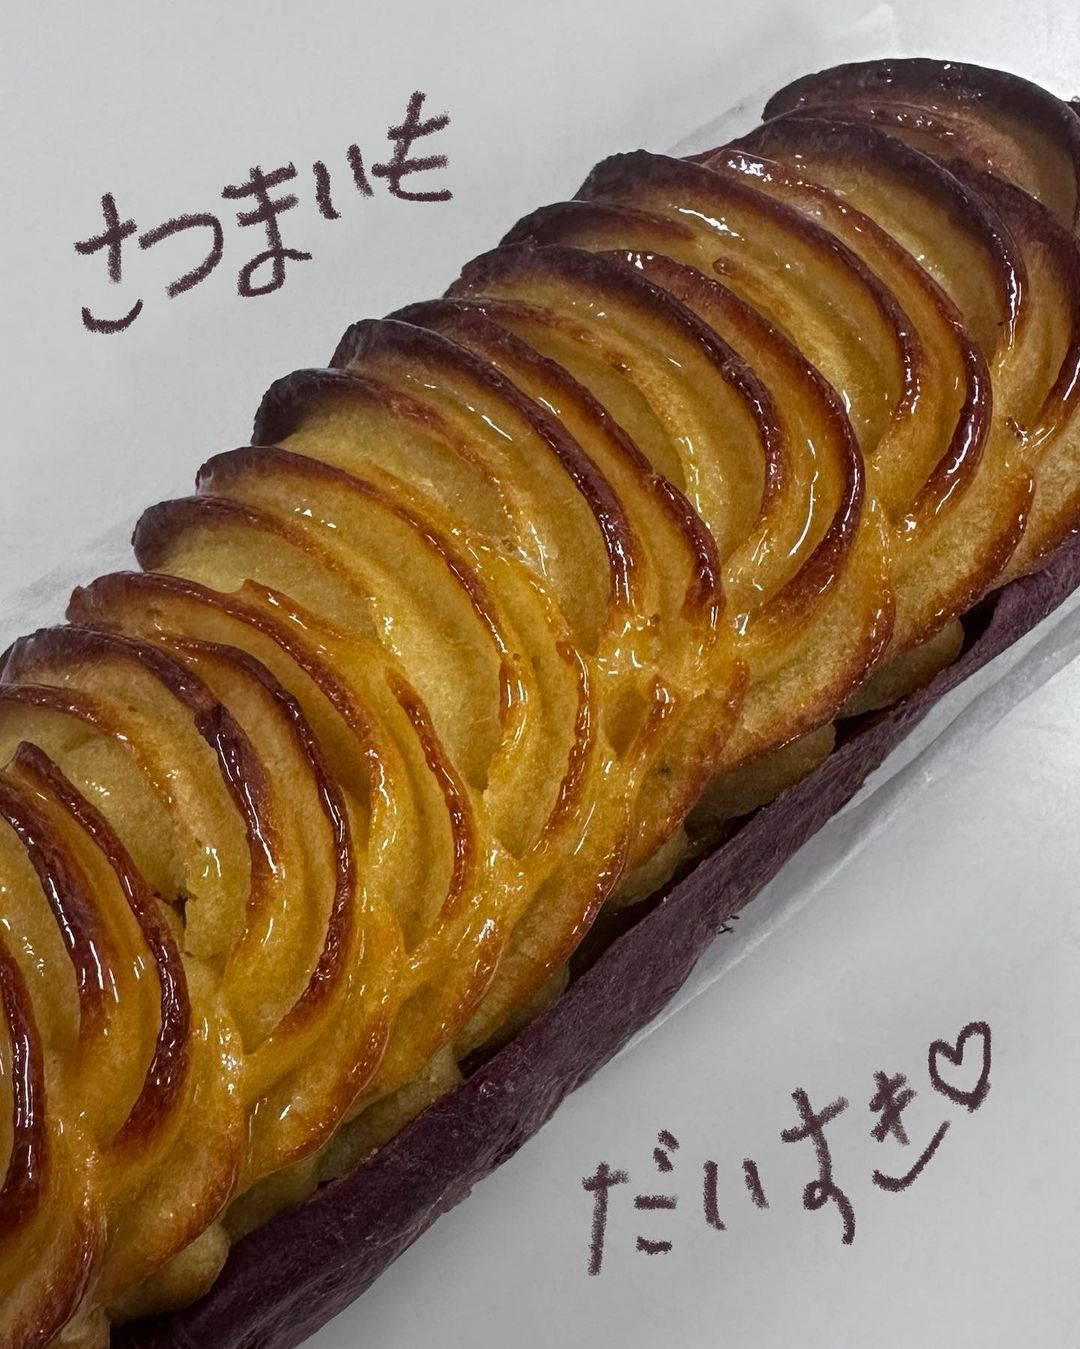 さつまいも
だいすき♡